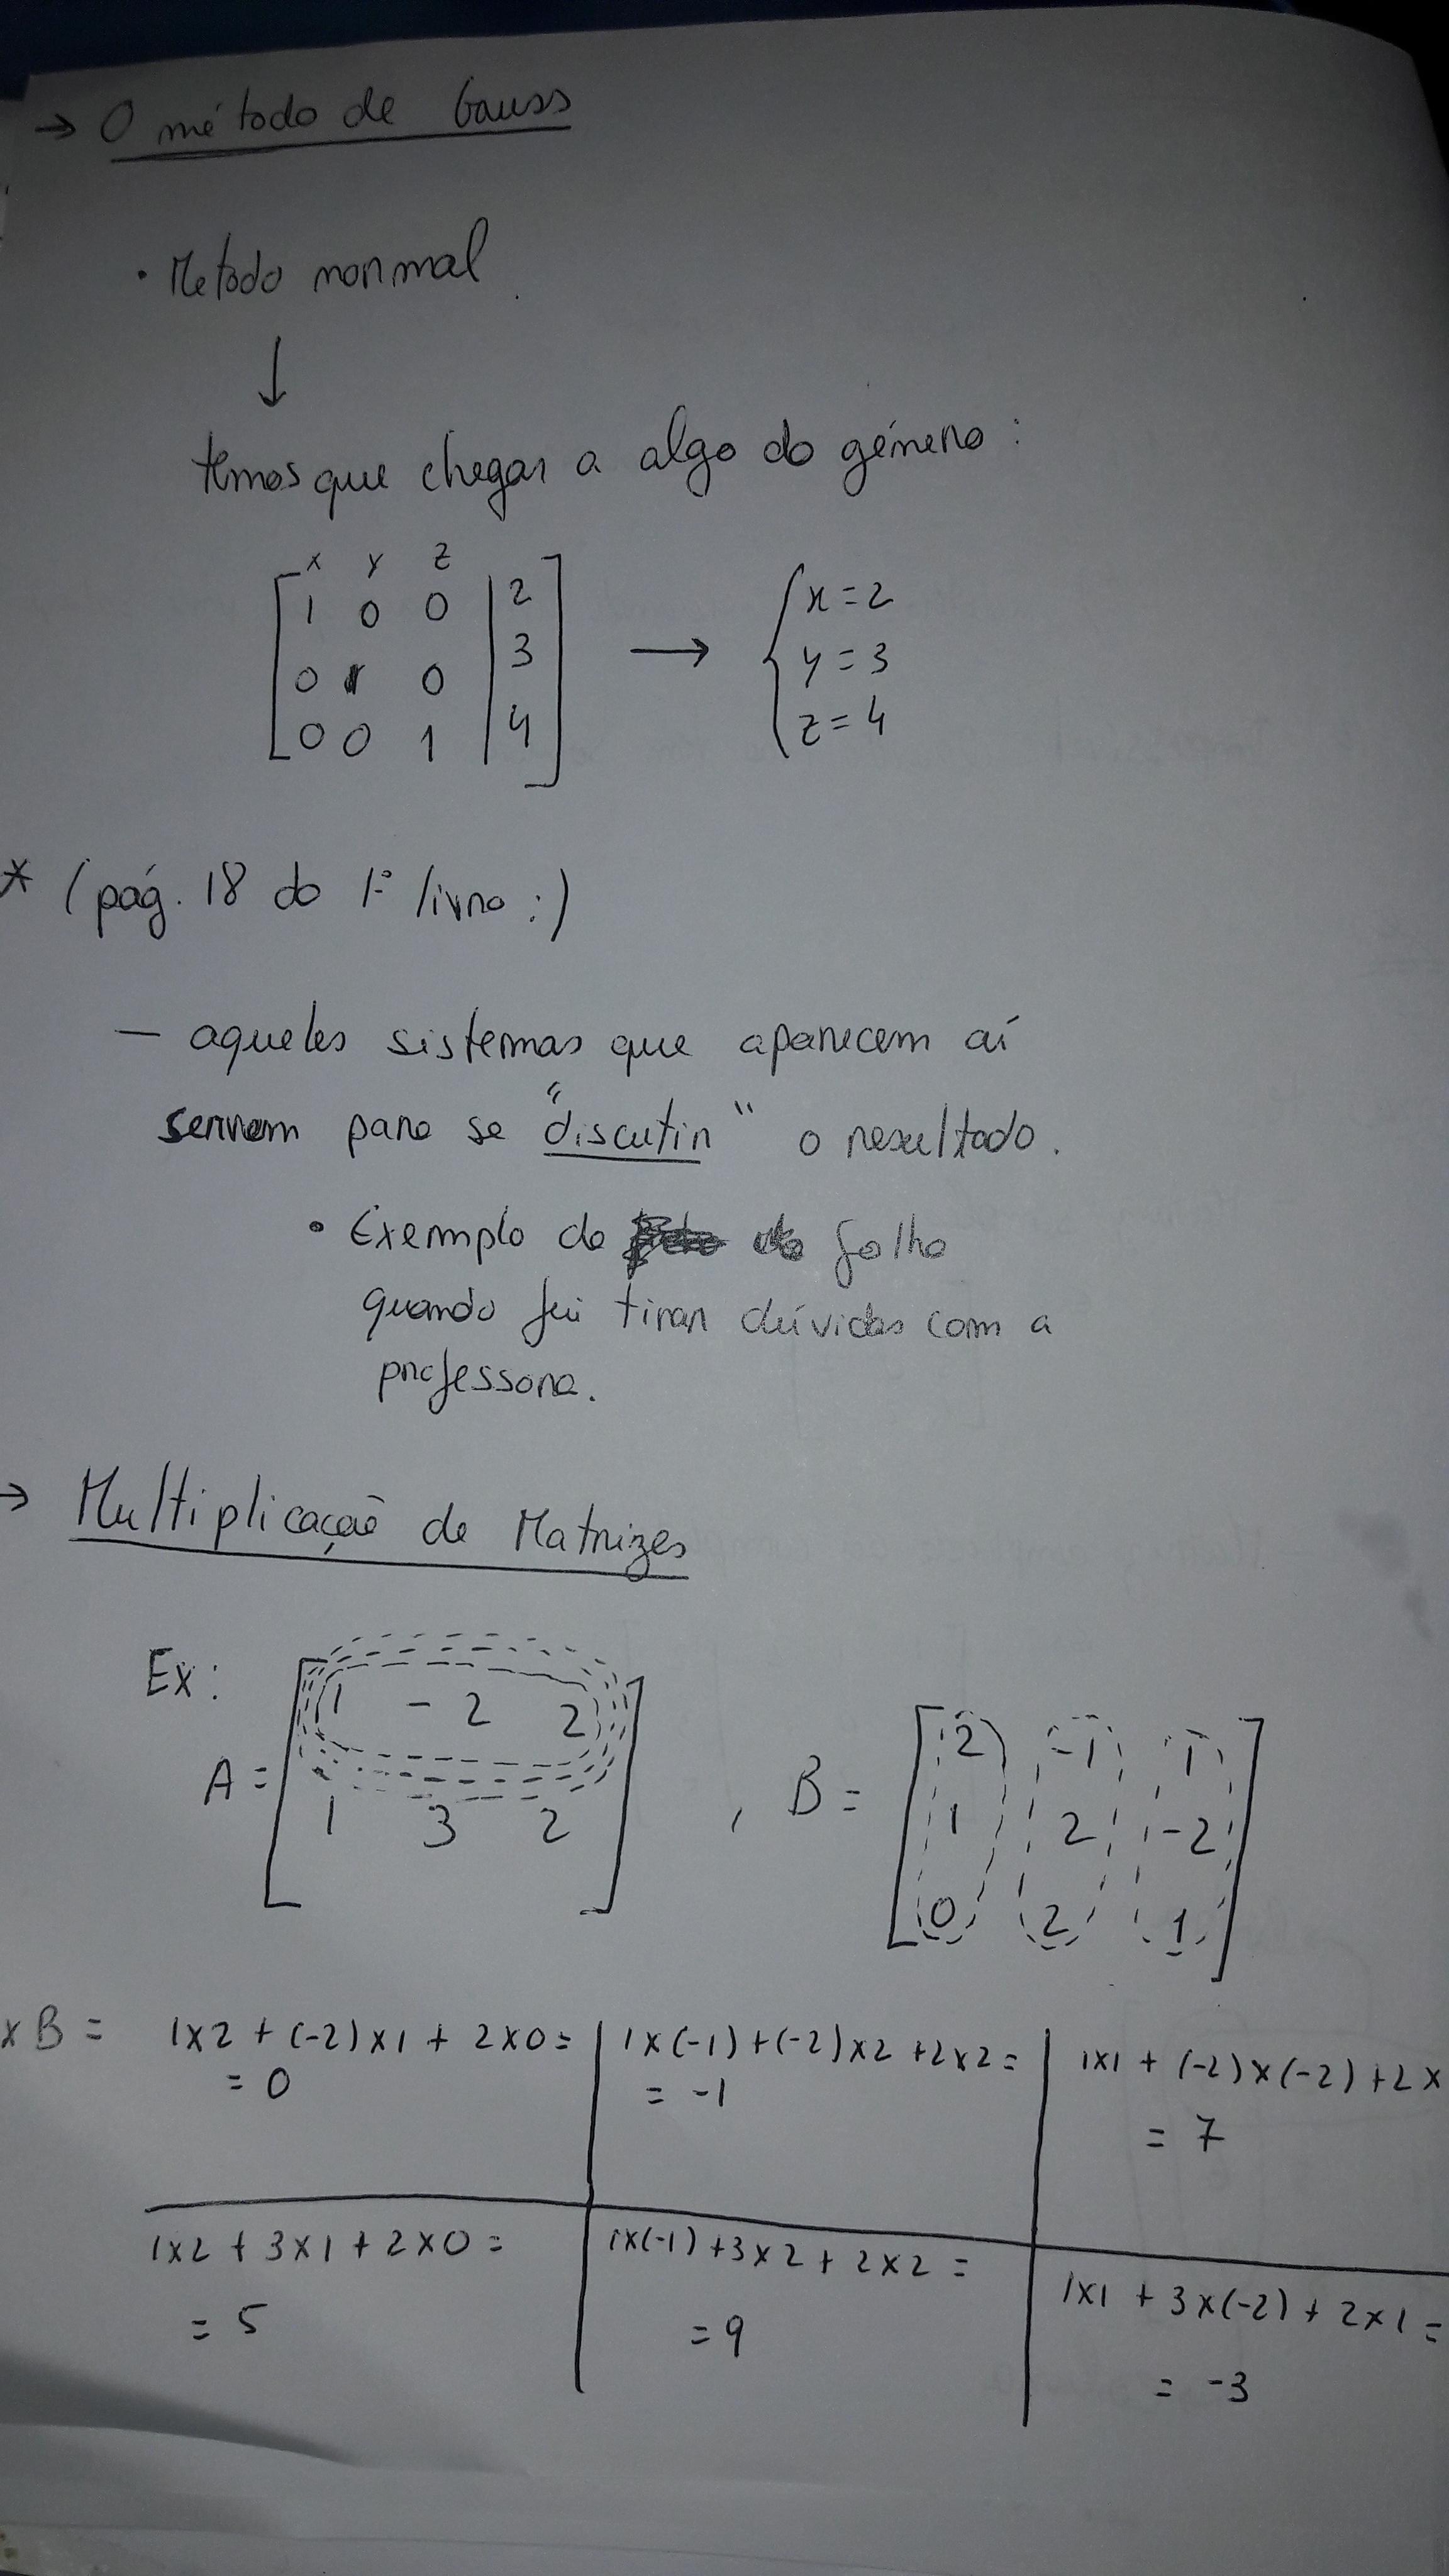 → O método de Gauss
• Metodo normal
↓
temos que chegar a algo do género:
x y z
1 0 0 | 2
0 1 0 | 3
0 0 1 | 4
→
x = 2
y = 3
z = 4
* (pág. 18 do 1º livro :)
— aqueles sistemas que aparecem aí
servem para se "discutir" o resultado.
• Exemplo da folha
quando fui tirar dúvidas com a
professora.
→ Multiplicação de Matrizes
Ex:
A = [1 -2 2
1 3 2]
, B = [2 -1 1
1 2 -2
0 2 1]
x B = 1x2 + (-2)x1 + 2x0 = | 1x(-1)+(-2)x2 +2x2 = | 1x1 + (-2)x(-2) +2x
= 0 | = -1 | = 7
1x2 + 3x1 + 2x0 = | 1x(-1) +3x2 + 2x2 = | 1x1 + 3x(-2) + 2x1 =
= 5 | = 9 | = -3